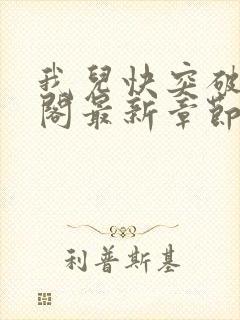 我兒快突破
閣最新章節
利普斯基